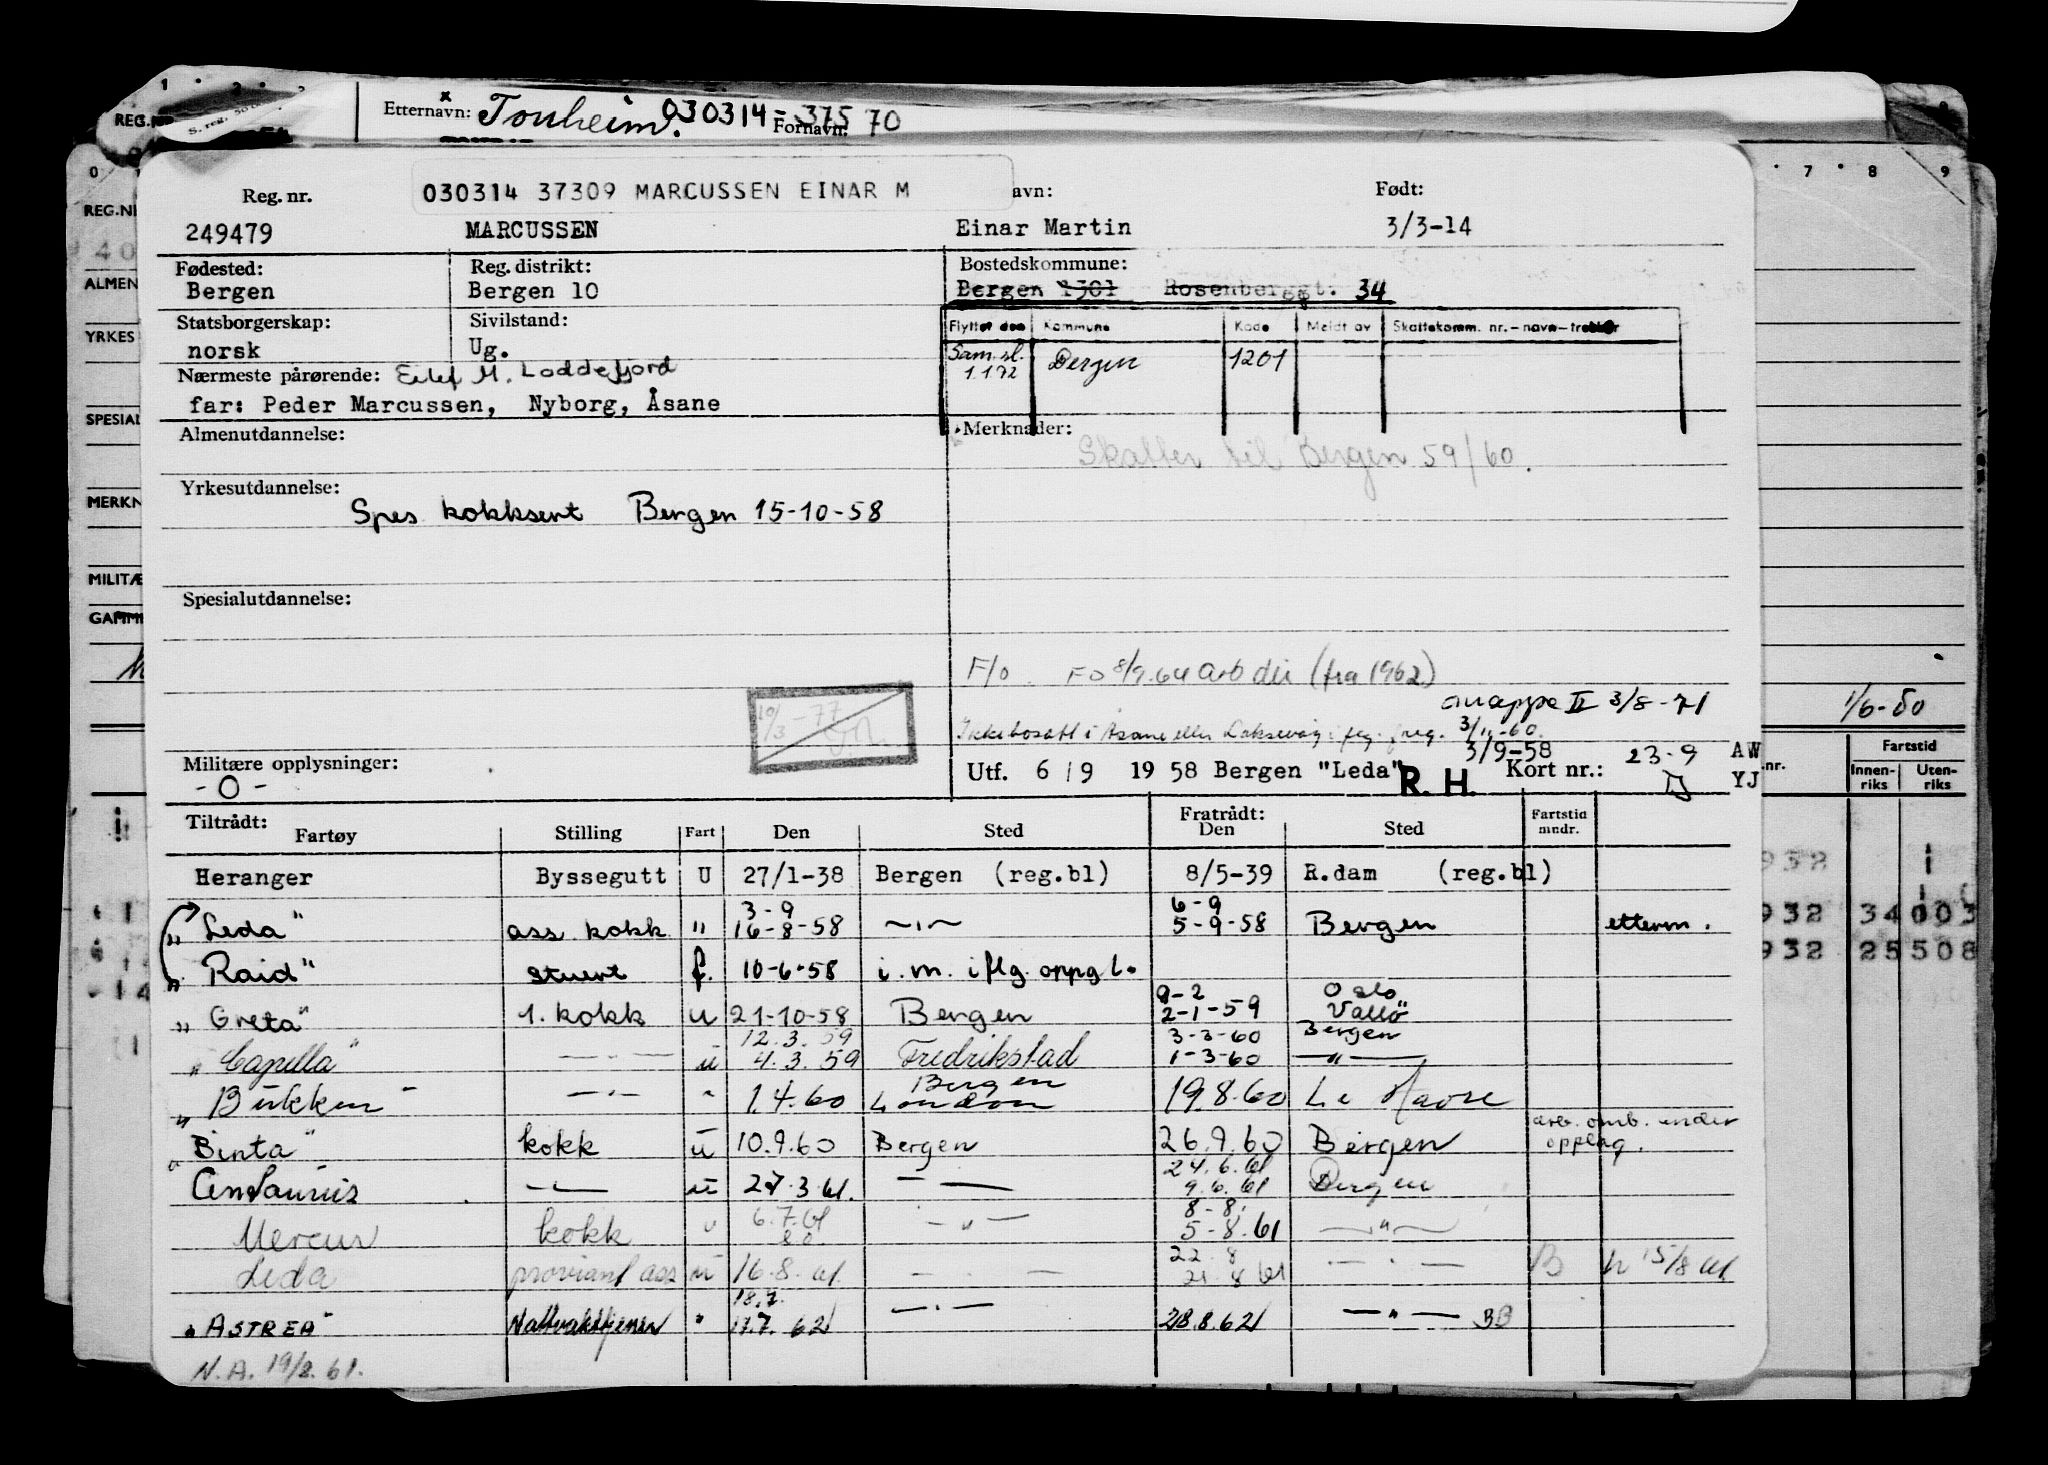 Etternavn: x Tonheim. 030314 = 375 70 Fornavn:
S. reg.
REG.NR
0 7 8 9
Reg. nr. 030314 37309 MARCUSSEN EINAR M avn: Født:
249479 MARCUSSEN Einar Martin 3/3-14
Fødested: Reg. distrikt: Bostedskommune:
Bergen Bergen 10 Bergen 1301 Rosenberggt. 34
Statsborgerskap: Sivilstand: Flyttet den Kommune Kode Meldt av Skattekomm. nr. - navn - trekker
norsk Ug. Sam.sl. 1.1 72 Bergen 1201
Nærmeste pårørende: Eilef M. Loddefjord
far: Peder Marcussen, Nyborg, Åsane
Almenutdannelse: Merknader:
Skatter til Bergen 59/60.
Yrkesutdannelse:
Spes kokksert Bergen 15-10-58
Spesialutdannelse:
F/o. FO 8/9.64 arb dir (fra 1962)
mappe II 3/8-71
10/3 -77
Ikke bosatt i Åsane eller Laksevåg i flg. f.reg. 3/11-60.
3/9-58
Militære opplysninger: Utf. 6/9 1958 Bergen "Leda" R. H. Kort nr.: 23-9 AW
- O - YJ
Tiltrådt: Fratrådt: Fartstid
Fartøy Stilling Fart Den Sted Den Sted mndr.
Heranger Byssegutt U 27/1-38 Bergen (reg.bl) 8/5-39 R.dam (reg.bl)
3-9 6-9
"Leda" ass. kokk " 16-8-58 -"- 5-9-58 Bergen etterm.
"Raid" stuert f. 10-6-58 i.m. iflg. oppg l.
9-2 Oslo
"Greta" 1. kokk u 21-10-58 Bergen 2-1-59 Vallø
12.3.59 3-3-60 Bergen
"Capella" -"- u 4.3.59 Fredrikstad 1-3-60 -"-
Bergen
"Bükken" -"- " 1.4.60 London 19.8.60 Le Havre
arb. omb. under
"Binta" kokk u 10.9.60 Bergen 26.9.60 Bergen opplag.
24.6.61
Centaurus -"- u 27.3.61. -"- 9.6.61 Bergen
6.7.61 8-8.
Mercur kokk " -"- 5-8.61 -"-
22.8
Leda proviant ass u 16.8.61. -"- 21.8 61 -"- B h 15/8 61
18.7.
"ASTREA" Nattvakttjener " 17.7. 62 -"- 28.8.62 -"- BB
N.A. 19/8.61.
REG.NR
40
ALMEN
YRKES
SPESIAL
MERKN
MILITÆ
GAMME
1/6-50
nr. Fartstid
Innen-riks Uten-riks
932 1
932 34 003
932 25 508